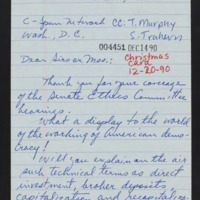 C-Span Network CC: T. Murphy
Wash. D.C. S. Truhern
004451 DEC 14 90
Dear Sir or Mrs.: Christmas
card
12-20-90
Thank you for your coverage
of the Senate Ethics Committee
hearings.
What a display to the world
of the working of American demo-
cracy!
Will you explain on the air
such technical terms as direct
investment, broker deposits
capitalization and recapitaliza-